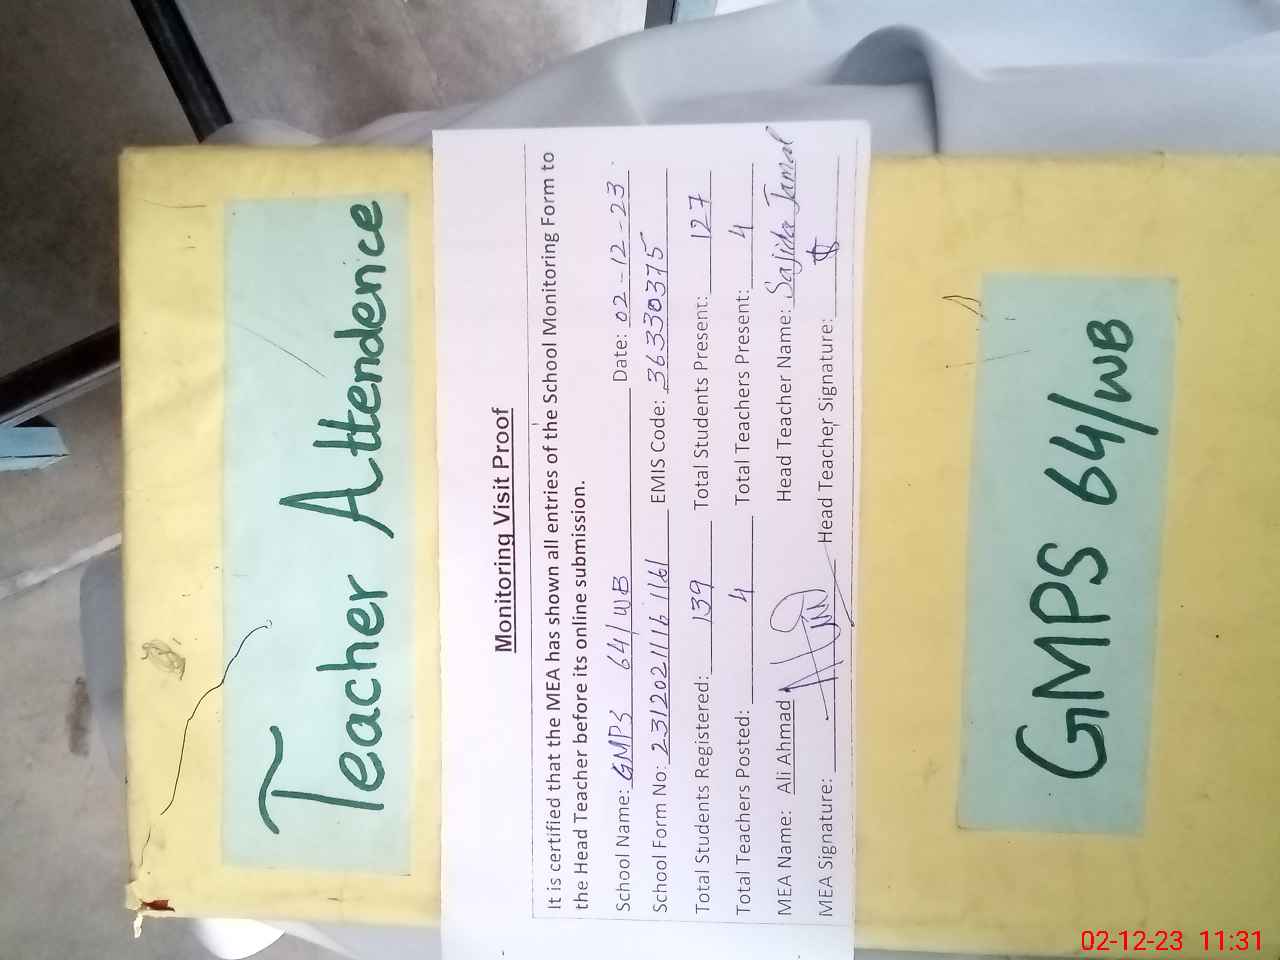 Teacher Attendence
Monitoring Visit Proof
It is certified that the MEA has shown all entries of the School Monitoring Form to
the Head Teacher before its online submission.
School Name: GMPS 64/WB Date: 02-12-23
School Form No: 23120211161161 EMIS Code: 36330375
Total Students Registered: 139 Total Students Present: 127
Total Teachers Posted: 4 Total Teachers Present: 4
MEA Name: Ali Ahmad Head Teacher Name: Sajida Jamal
MEA Signature: Head Teacher Signature:
GMPS 64/WB
02-12-23 11:31